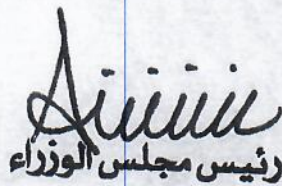 رئيس مجلس الوزراء